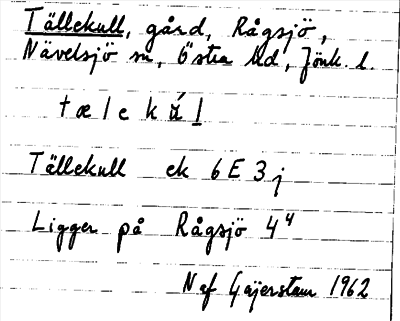 Tällekull, gård, Rågsjö,
Nävelsjö sn, Östra hd, Jönk. l.
tælekúl
Tällekull ek 6E3j
Ligger på Rågsjö 4⁴
Naf Gajerstam 1962